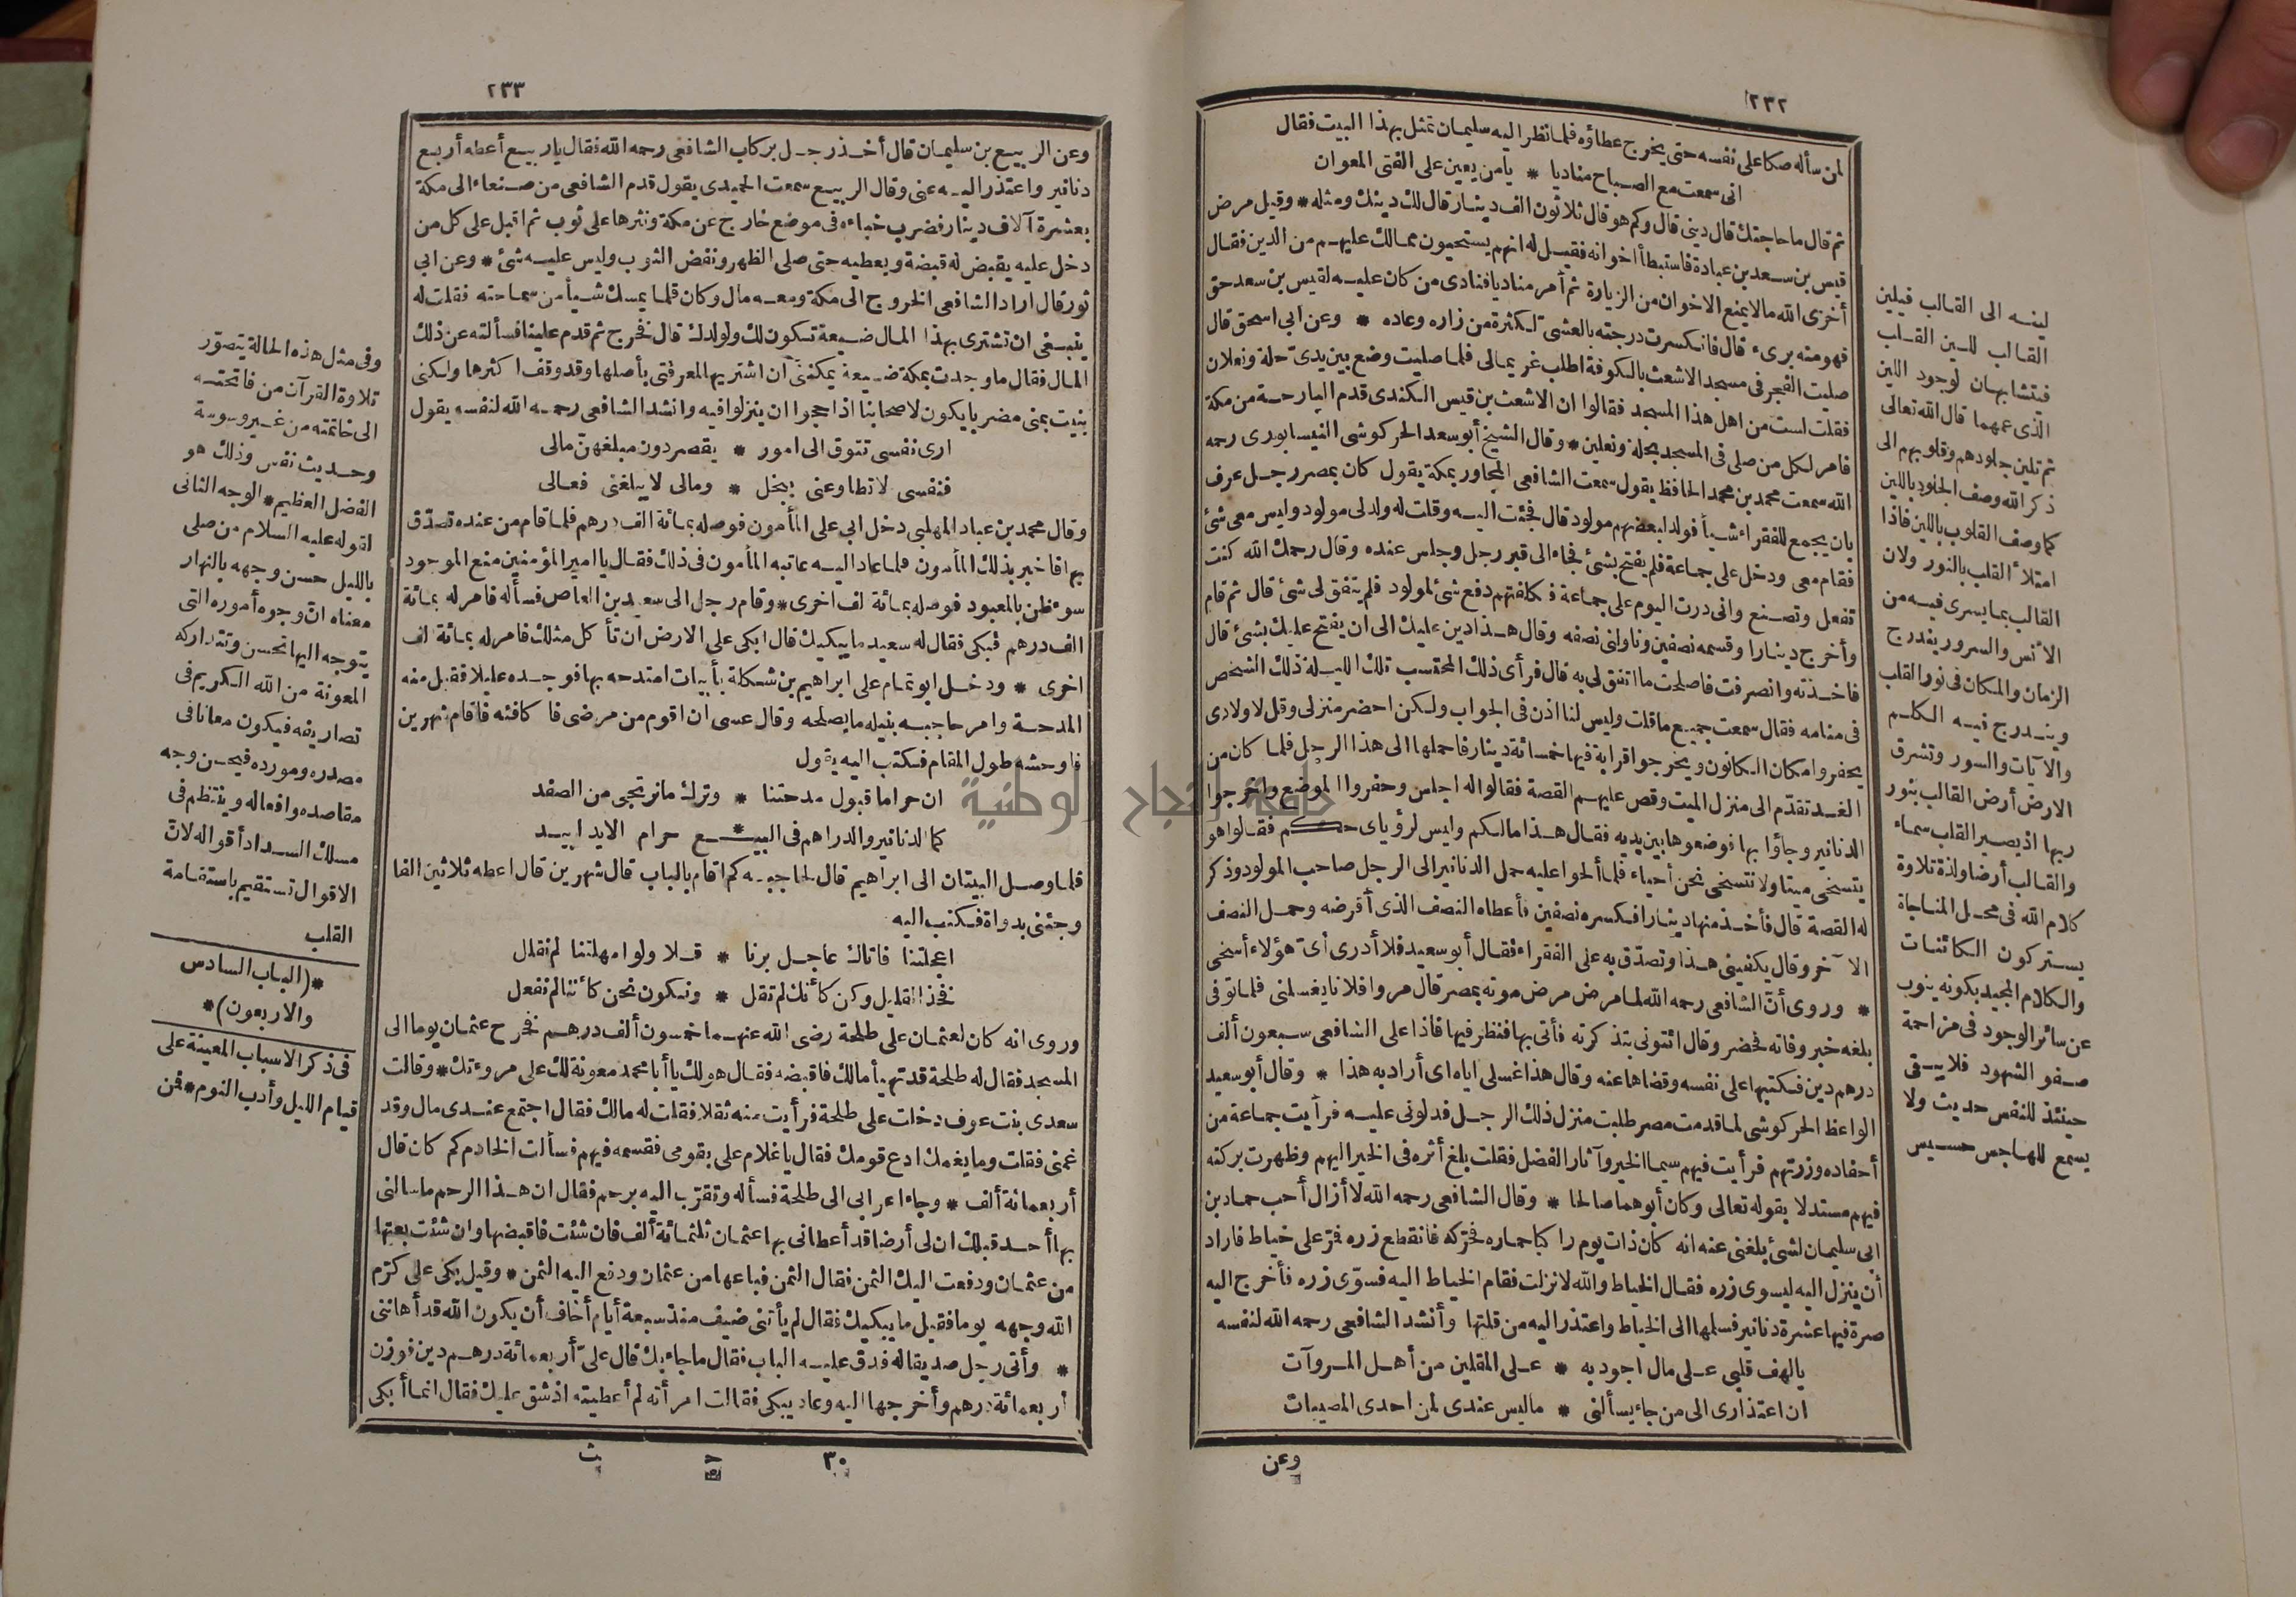 ٢٣٢
لمن سأله صكا على نفسه حتى يخرج عطاؤه فلما نظر اليه سليمان تمثل بهذا البيت فقال
انى سمعت مع الصباح مناديا * يامن يعين على الفتى المعوان
ثم قال ما حاجتك قال دينى قال وكم هو قال ثلاثون الف دينار قال لك دينك ومثله * وقيل مرض
قيس بن سعد بن عبادة فاستبطأ اخوانه فقيل له انهم يستحيون ممالك عليهم من الدين فقال
أخزى الله مالا يمنع الاخوان من الزيارة ثم أمر مناديا فنادى من كان عليه لقيس بن سعد حق
فهو منه برىء قال فانكسرت درجته بالعشى لكثرة من زاره وعاده * وعن ابى اسحق قال
صليت الفجر فى مسجد الاشعث بالكوفة اطلب غريمالى فلما صليت وضع بين يدىّ حلة ونعلان
فقلت لست من اهل هذا المسجد فقالوا ان الاشعث بن قيس الكندى قدم البارحة من مكة
فامر لكل من صلى فى المسجد بحلة ونعلين * وقال الشيخ أبو سعد الخركوشى النيسابورى رحمه
الله سمعت محمد بن محمد الحافظ يقول سمعت الشافعى المجاور بمكة يقول كان بمصر رجل عرف
بان يجمع للفقراء شيأ فولد لبعضهم مولود قال فجئت اليه وقلت له ولد لى مولود وليس معى شئ
فقام معى ودخل على جماعة فلم يفتح بشئ فجاء الى قبر رجل وجلس عنده وقال رحمك الله كنت
تفعل وتصنع وانى درت اليوم على جماعة فكلفتهم دفع شئ لمولود فلم يتفق لى شئ قال ثم قام
وأخرج دينارا وقسمه نصفين وناولنى نصفه وقال هذا دين عليك الى ان يفتح عليك بشئ قال
فاخذته وانصرفت فاصلحت ما اتفق لى به قال فرأى ذلك المحتسب تلك الليلة ذلك الشخص
فى منامه فقال سمعت جميع ماقلت وليس لنا اذن فى الجواب ولكن احضر منزلى وقل لاولادى
يحفروا مكان الكانون ويخرجوا قرابة فيها خمسمائة دينار فاحملها الى هذا الرجل فلما كان من
الغد تقدّم الى منزل الميت وقص عليهم القصة فقالوا له اجلس وحفروا الموضع واخرجوا
الدنانير وجاؤا بها فوضعوها بين يديه فقال هذا مالكم وليس لرؤياى حكم فقالوا هو
يتسخى ميتا ولا نتسخى نحن أحياء فلما ألحوا عليه حمل الدنانير الى الرجل صاحب المولود وذكر
له القصة قال فأخذ منها دينارا فكسره نصفين فأعطاه النصف الذى أقرضه وحمل النصف
الآخر وقال يكفينى هذا وتصدّق به على الفقراء فقال أبو سعيد فلا أدرى أىّ هؤلاء أسخى
* وروى أنّ الشافعى رحمه الله لما مرض مرض موته بمصر قال مروا فلانا يغسلنى فلما توفى
بلغه خبر وفاته فحضر وقال ائتونى بتذكرته فأتى بها فنظر فيها فاذا على الشافعى سبعون ألف
درهم دين فكتبها على نفسه وقضاها عنه وقال هذا غسلى اياه اى أراد به هذا * وقال أبو سعيد
الواعظ الخركوشى لما قدمت مصر طلبت منزل ذلك الرجل فدلونى عليه فرأيت جماعة من
أحفاده وزرتهم فرأيت فيهم سيما الخير وآثار الفضل فقلت بلغ أثره فى الخير اليهم وظهرت بركته
فيهم مستدلا بقوله تعالى وكان أبوهما صالحا * وقال الشافعى رحمه الله لا أزال أحب حماد بن
ابى سليمان لشئ بلغنى عنه انه كان ذات يوم راكبا حماره فحرّكه فانقطع زره فمرّ على خياط فاراد
أن ينزل اليه ليسوى زره فقال الخياط والله لا نزلت فقام الخياط اليه فسوّى زره فأخرج اليه
صرة فيها عشرة دنانير فسلمها الى الخياط واعتذر اليه من قلتها وأنشد الشافعى رحمه الله لنفسه
يالهف قلبى على مال اجود به * على المقلين من أهل المروآت
ان اعتذارى الى من جاء يسألنى * ما ليس عندى لمن احدى المصيبات
وعن
لينه الى القالب فيلين
القالب للين القلب
فيتشابهان لوجود اللين
الذى عمهما قال الله تعالى
ثم تلين جلودهم وقلوبهم الى
ذكر الله وصف الجلود باللين
كما وصف القلوب باللين فاذا
امتلأ القلب بالنور ولان
القالب بما يسرى فيه من
الأنس والسرور يندرج
الزمان والمكان فى نور القلب
ويندرج فيه الكلم
والآيات والسور وتشرق
الارض أرض القالب بنور
ربها اذ يصير القلب سماء
والقالب أرضا ولذة تلاوة
كلام الله فى محل المناجاة
يستر كون الكائنات
والكلام المجيد بكونه ينوب
عن سائر الوجود فى مزاحمة
صفو الشهود فلا يبقى
حينئذ للنفس حديث ولا
يسمع للهاجس حسيس
٢٣٣
وعن الربيع بن سليمان قال أخذ رجل بركاب الشافعى رحمه الله فقال يا ربيع أعطه أربع
دنانير واعتذر اليه عنى وقال الربيع سمعت الحميدى يقول قدم الشافعى من صنعاء الى مكة
بعشرة آلاف دينار فضرب خباءه فى موضع خارج عن مكة ونثرها على ثوب ثم اقبل على كل من
دخل عليه يقبض له قبضة ويعطيه حتى صلى الظهر ونفض الثوب وليس عليه شئ * وعن ابى
ثور قال اراد الشافعى الخروج الى مكة ومعه مال وكان قلما يمسك شيأ من سماحته فقلت له
ينبغى ان تشترى بهذا المال ضيعة تكون لك ولولدك قال فخرج ثم قدم علينا فسألته عن ذلك
المال فقال ما وجدت بمكة ضيعة يمكننى أن اشتريها لمعرفتى بأصلها وقد وقف اكثرها ولكنى
بنيت بمنى مضربا يكون لاصحابنا اذا حجوا ان ينزلوا فيه وانشد الشافعى رحمه الله لنفسه يقول
ارى نفسى تتوق الى امور * يقصر دون مبلغهنّ مالى
فنفسى لا تطاوعنى ببخل * ومالى لا يبلغنى فعالى
وقال محمد بن عباد المهلبى دخل ابى على المأمون فوصله بمائة الف درهم فلما قام من عنده تصدّق
بها فاخبر بذلك المأمون فلما عاد اليه عاتبه المأمون فى ذلك فقال يا امير المؤمنين منع الموجود
سوء ظن بالمعبود فوصله بمائة الف اخرى * وقام رجل الى سعيد بن العاص فسأله فامر له بمائة
الف درهم فبكى فقال له سعيد ما يبكيك قال ابكى على الارض ان تأكل مثلك فامر له بمائة الف
اخرى * ودخل ابو تمام على ابراهيم بن شكلة بأبيات امتدحه بها فوجده عليلا فقبل منه
المدحة وامر حاجبه بنيله ما يصلحه وقال عسى ان اقوم من مرضى فاكافئه فاقام شهرين
فاوحشه طول المقام فكتب اليه يقول
ان حراما قبول مدحتنا * وترك ما نرتجى من الصفد
كما الدنانير والدراهم فى البيـ * ـع حرام الا يدا بيد
فلما وصل البيتان الى ابراهيم قال لحاجبه كم اقام بالباب قال شهرين قال اعطه ثلاثين الفا
وجئنى بدواة فكتب اليه
اعجلتنا فاتاك عاجل برنا * قلا ولو امهلتنا لم نقلل
فخذ القليل وكن كأنك لم تقل * ونكون نحن كأننا لم نفعل
وروى انه كان لعثمان على طلحة رضى الله عنهما خمسون ألف درهم فخرج عثمان يوما الى
المسجد فقال له طلحة قد تهيأ مالك فاقبضه فقال هو لك يا أبا محمد معونة لك على مروءتك * وقالت
سعدى بنت عوف دخلت على طلحة فرأيت منه ثقلا فقلت له مالك فقال اجتمع عندى مال وقد
غمنى فقلت وما يغمك ادع قومك فقال يا غلام علىّ بقومى فقسمه فيهم فسألت الخادم كم كان قال
أربعمائة ألف * وجاء اعرابى الى طلحة فسأله وتقرّب اليه برحم فقال ان هذا الرحم ماسالنى
بها أحد قبلك ان لى أرضا قد أعطانى بها عثمان ثلثمائة ألف فان شئت فاقبضها وان شئت بعتها
من عثمان ودفعت اليك الثمن فقال الثمن فباعها من عثمان ودفع اليه الثمن * وقيل بكى على كرّم
الله وجهه يوما فقيل ما يبكيك فقال لم يأتنى ضيف منذ سبعة أيام أخاف أن يكون الله قد أهاننى
* وأتى رجل صديقا له فدق عليه الباب فقال ما جاء بك قال علىّ أربعمائة درهم دين فوزن
أربعمائة درهم وأخرجها اليه وعاد يبكى فقالت امرأته لم أعطيته اذ شق عليك فقال انما أبكى
٣٠ ث
وفى مثل هذه الحالة يتصوّر
تلاوة القرآن من فاتحته
الى خاتمته من غير وسوسة
وحديث نفس وذلك هو
الفضل العظيم * الوجه الثانى
لقوله عليه السلام من صلى
بالليل حسن وجهه بالنهار
معناه انّ وجوه أموره التى
يتوجه اليها تحسن وتتداركه
المعونة من الله الكريم فى
تصاريفه فيكون معانا فى
مصدره ومورده فيحسن وجه
مقاصده وافعاله وينتظم فى
مسلك السداد أقواله لانّ
الاقوال تستقيم باستقامة
القلب
*(الباب السادس
والاربعون)*
فى ذكر الاسباب المعينة على
قيام الليل وأدب النوم * فمن
جامعة النجاح الوطنية